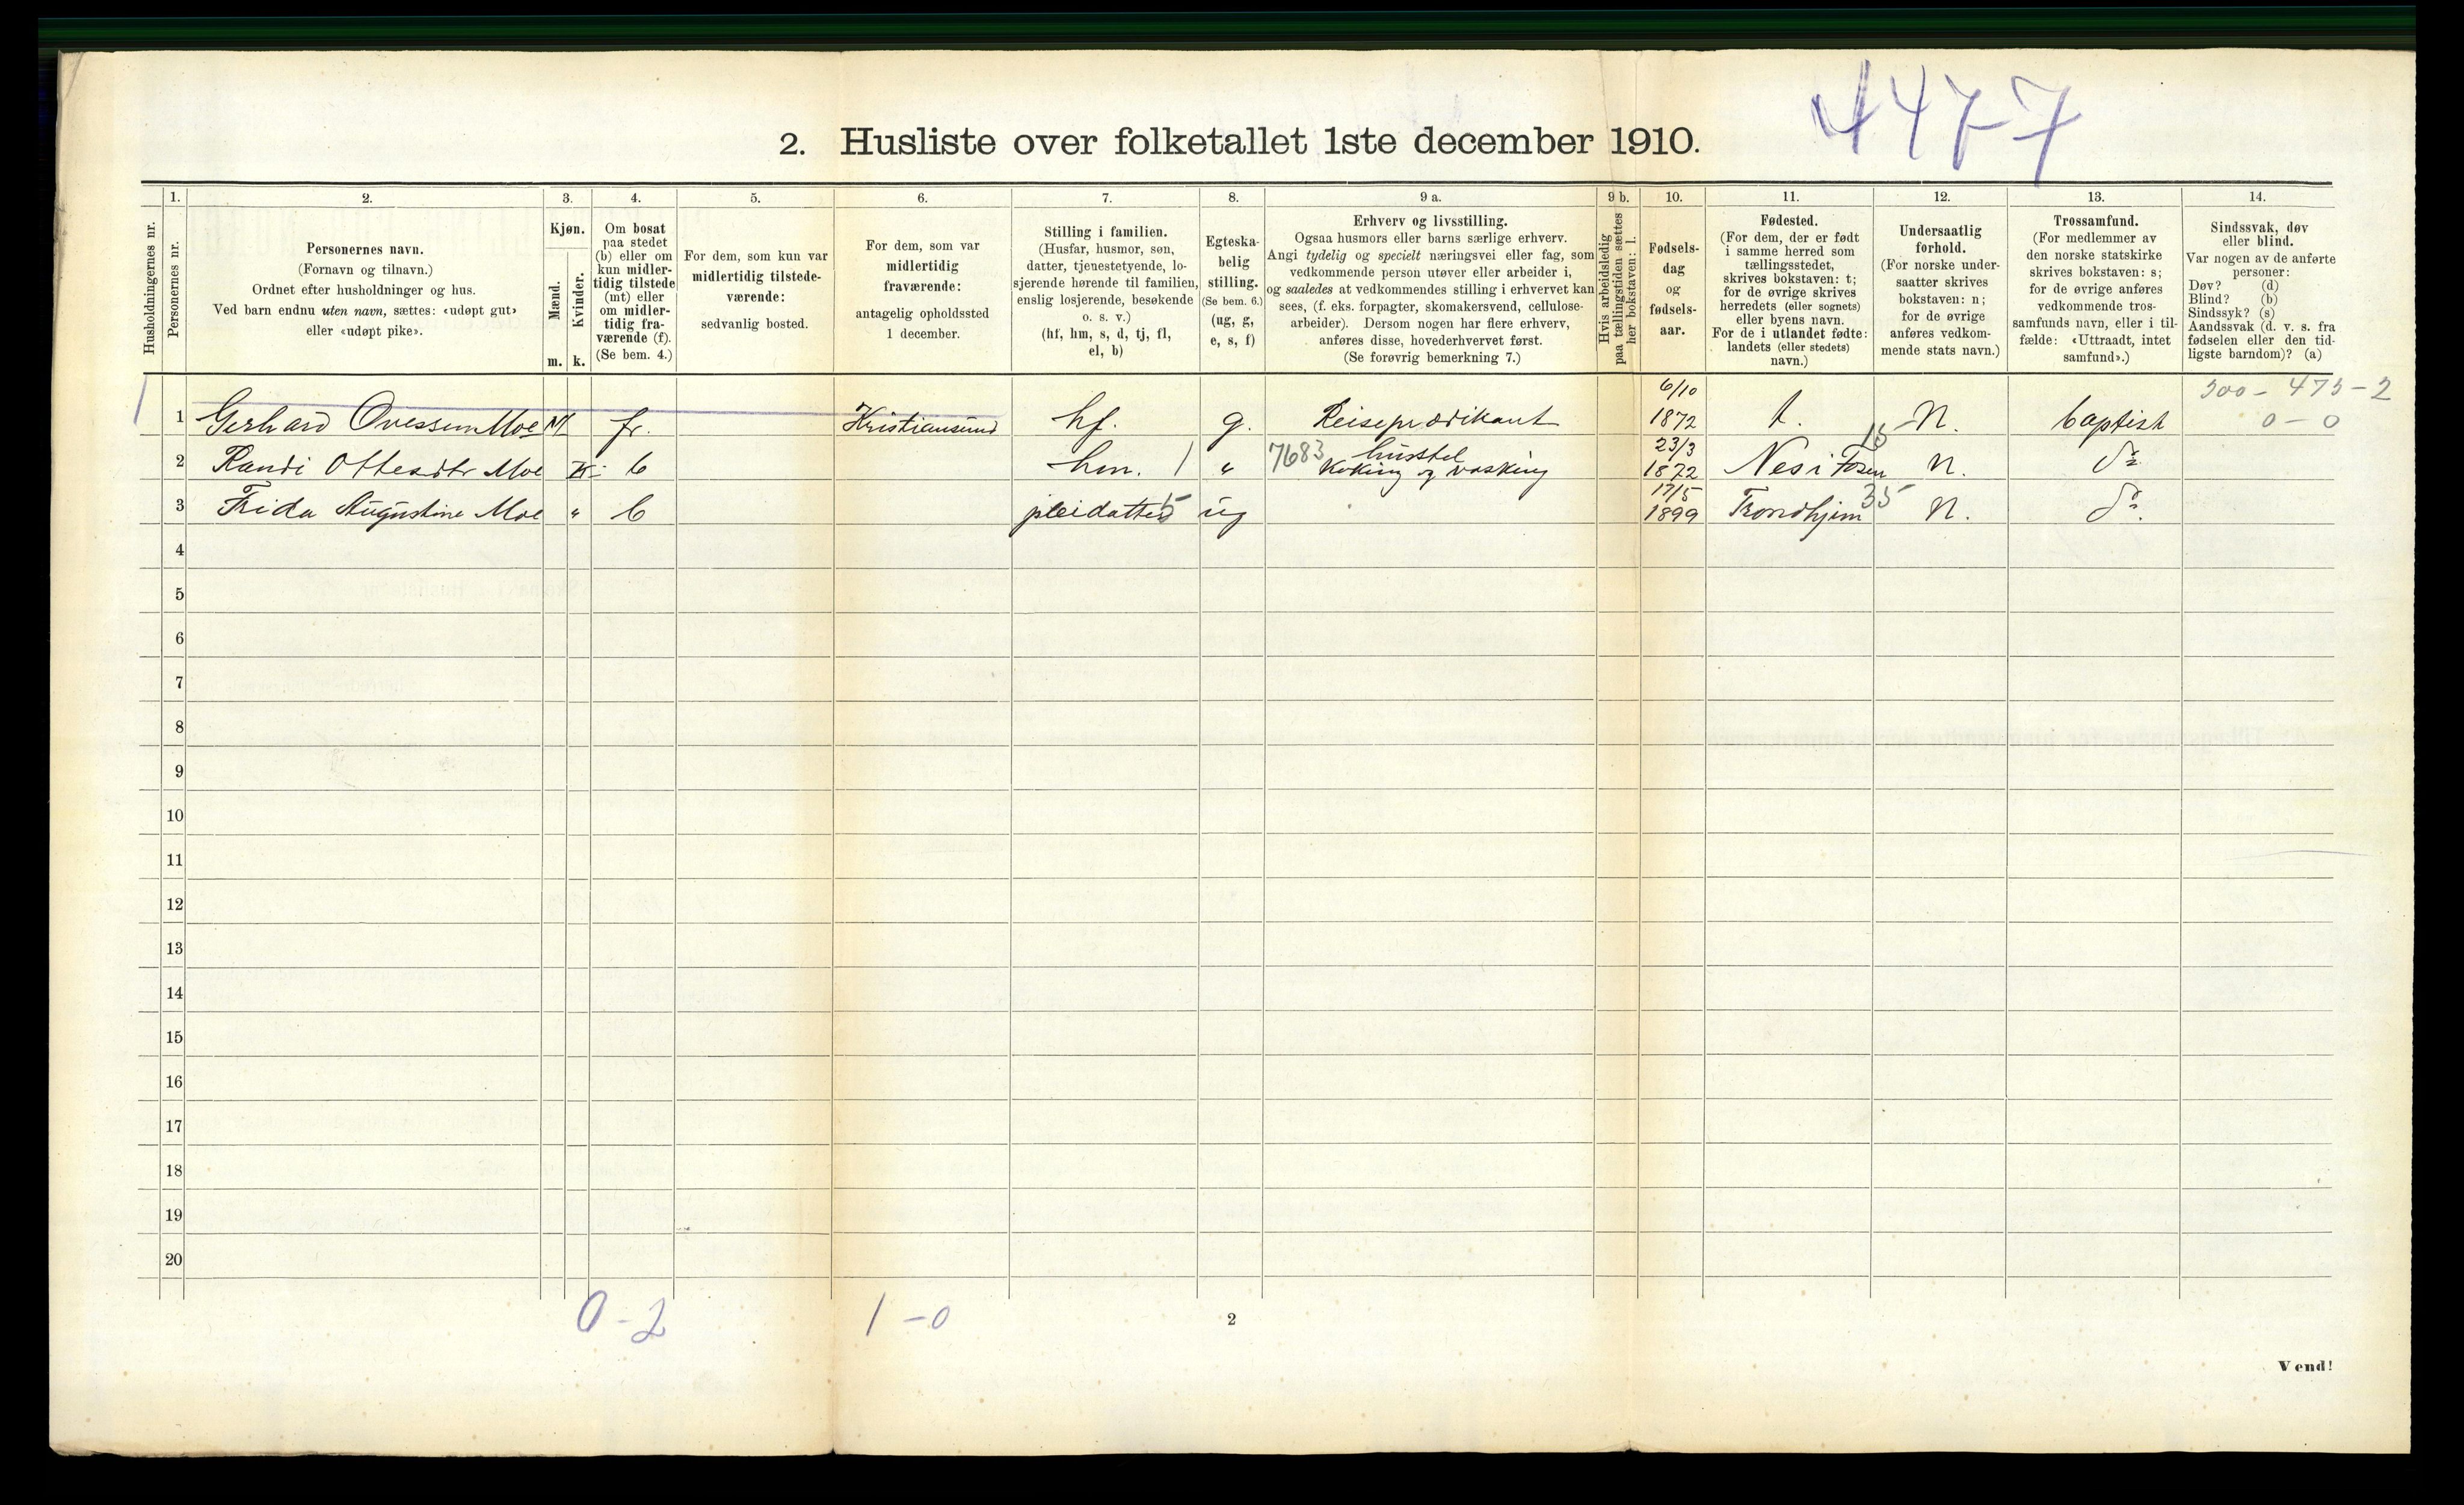 4477
2. Husliste over folketallet 1ste december 1910.
Husholdningernes nr.
1.
Personernes nr.
2.
Personernes navn.
(Fornavn og tilnavn.)
Ordnet efter husholdninger og hus.
Ved barn endnu uten navn, sættes: «udøpt gut»
eller «udøpt pike».
3.
Kjøn.
Mænd.
m.
Kvinder.
k.
4.
Om bosat
paa stedet
(b) eller om
kun midler-
tidig tilstede
(mt) eller
om midler-
tidig fra-
værende (f).
(Se bem. 4.)
5.
For dem, som kun var
midlertidig tilstede-
værende:
sedvanlig bosted.
6.
For dem, som var
midlertidig
fraværende:
antagelig opholdssted
1 december.
7.
Stilling i familien.
(Husfar, husmor, søn,
datter, tjenestetyende, lo-
sjerende hørende til familien,
enslig losjerende, besøkende
o. s. v.)
(hf, hm, s, d, tj, fl,
el, b)
8.
Egteska-
belig
stilling.
(Se bem. 6.)
(ug, g,
e, s, f)
9 a.
Erhverv og livsstilling.
Ogsaa husmors eller barns særlige erhverv.
Angi tydelig og specielt næringsvei eller fag, som
vedkommende person utøver eller arbeider i,
og saaledes at vedkommendes stilling i erhvervet kan
sees, (f. eks. forpagter, skomakersvend, cellulose-
arbeider). Dersom nogen har flere erhverv,
anføres disse, hovederhvervet først.
(Se forøvrig bemerkning 7.)
9 b.
Hvis arbeidsledig
paa tællingstiden sættes
her bokstaven: l.
10.
Fødsels-
dag
og
fødsels-
aar.
11.
Fødested.
(For dem, der er født
i samme herred som
tællingsstedet,
skrives bokstaven: t;
for de øvrige skrives
herredets (eller sognets)
eller byens navn.
For de i utlandet fødte:
landets (eller stedets)
navn.)
12.
Undersaatlig
forhold.
(For norske under-
saatter skrives
bokstaven: n;
for de øvrige
anføres vedkom-
mende stats navn.)
13.
Trossamfund.
(For medlemmer av
den norske statskirke
skrives bokstaven: s;
for de øvrige anføres
vedkommende tros-
samfunds navn, eller i til-
fælde: «Uttraadt, intet
samfund».)
14.
Sindssvak, døv
eller blind.
Var nogen av de anførte
personer:
Døv? (d)
Blind? (b)
Sindssyk? (s)
Aandssvak (d. v. s. fra
fødselen eller den tid-
ligste barndom)? (a)
1 1 Gerhard Ovessen Moe M fr. Kristiansund hf. g. Reiseprædikant 6/10 1872 t. N. baptist 300-475-2
0-0
2 Randi Ottesdtr Moe K. b hm. 1 " 7683 husstel
Koking og vasking 23/3 1872 Nes i Fosen 15 N. do
3 Frida Augustine Moe " b pleidatter 5 ug 17/5 1899 Trondhjem 35 N. do
4
5
6
7
8
9
10
11
12
13
14
15
16
17
18
19
20
0-2 1-0
2
Vend!